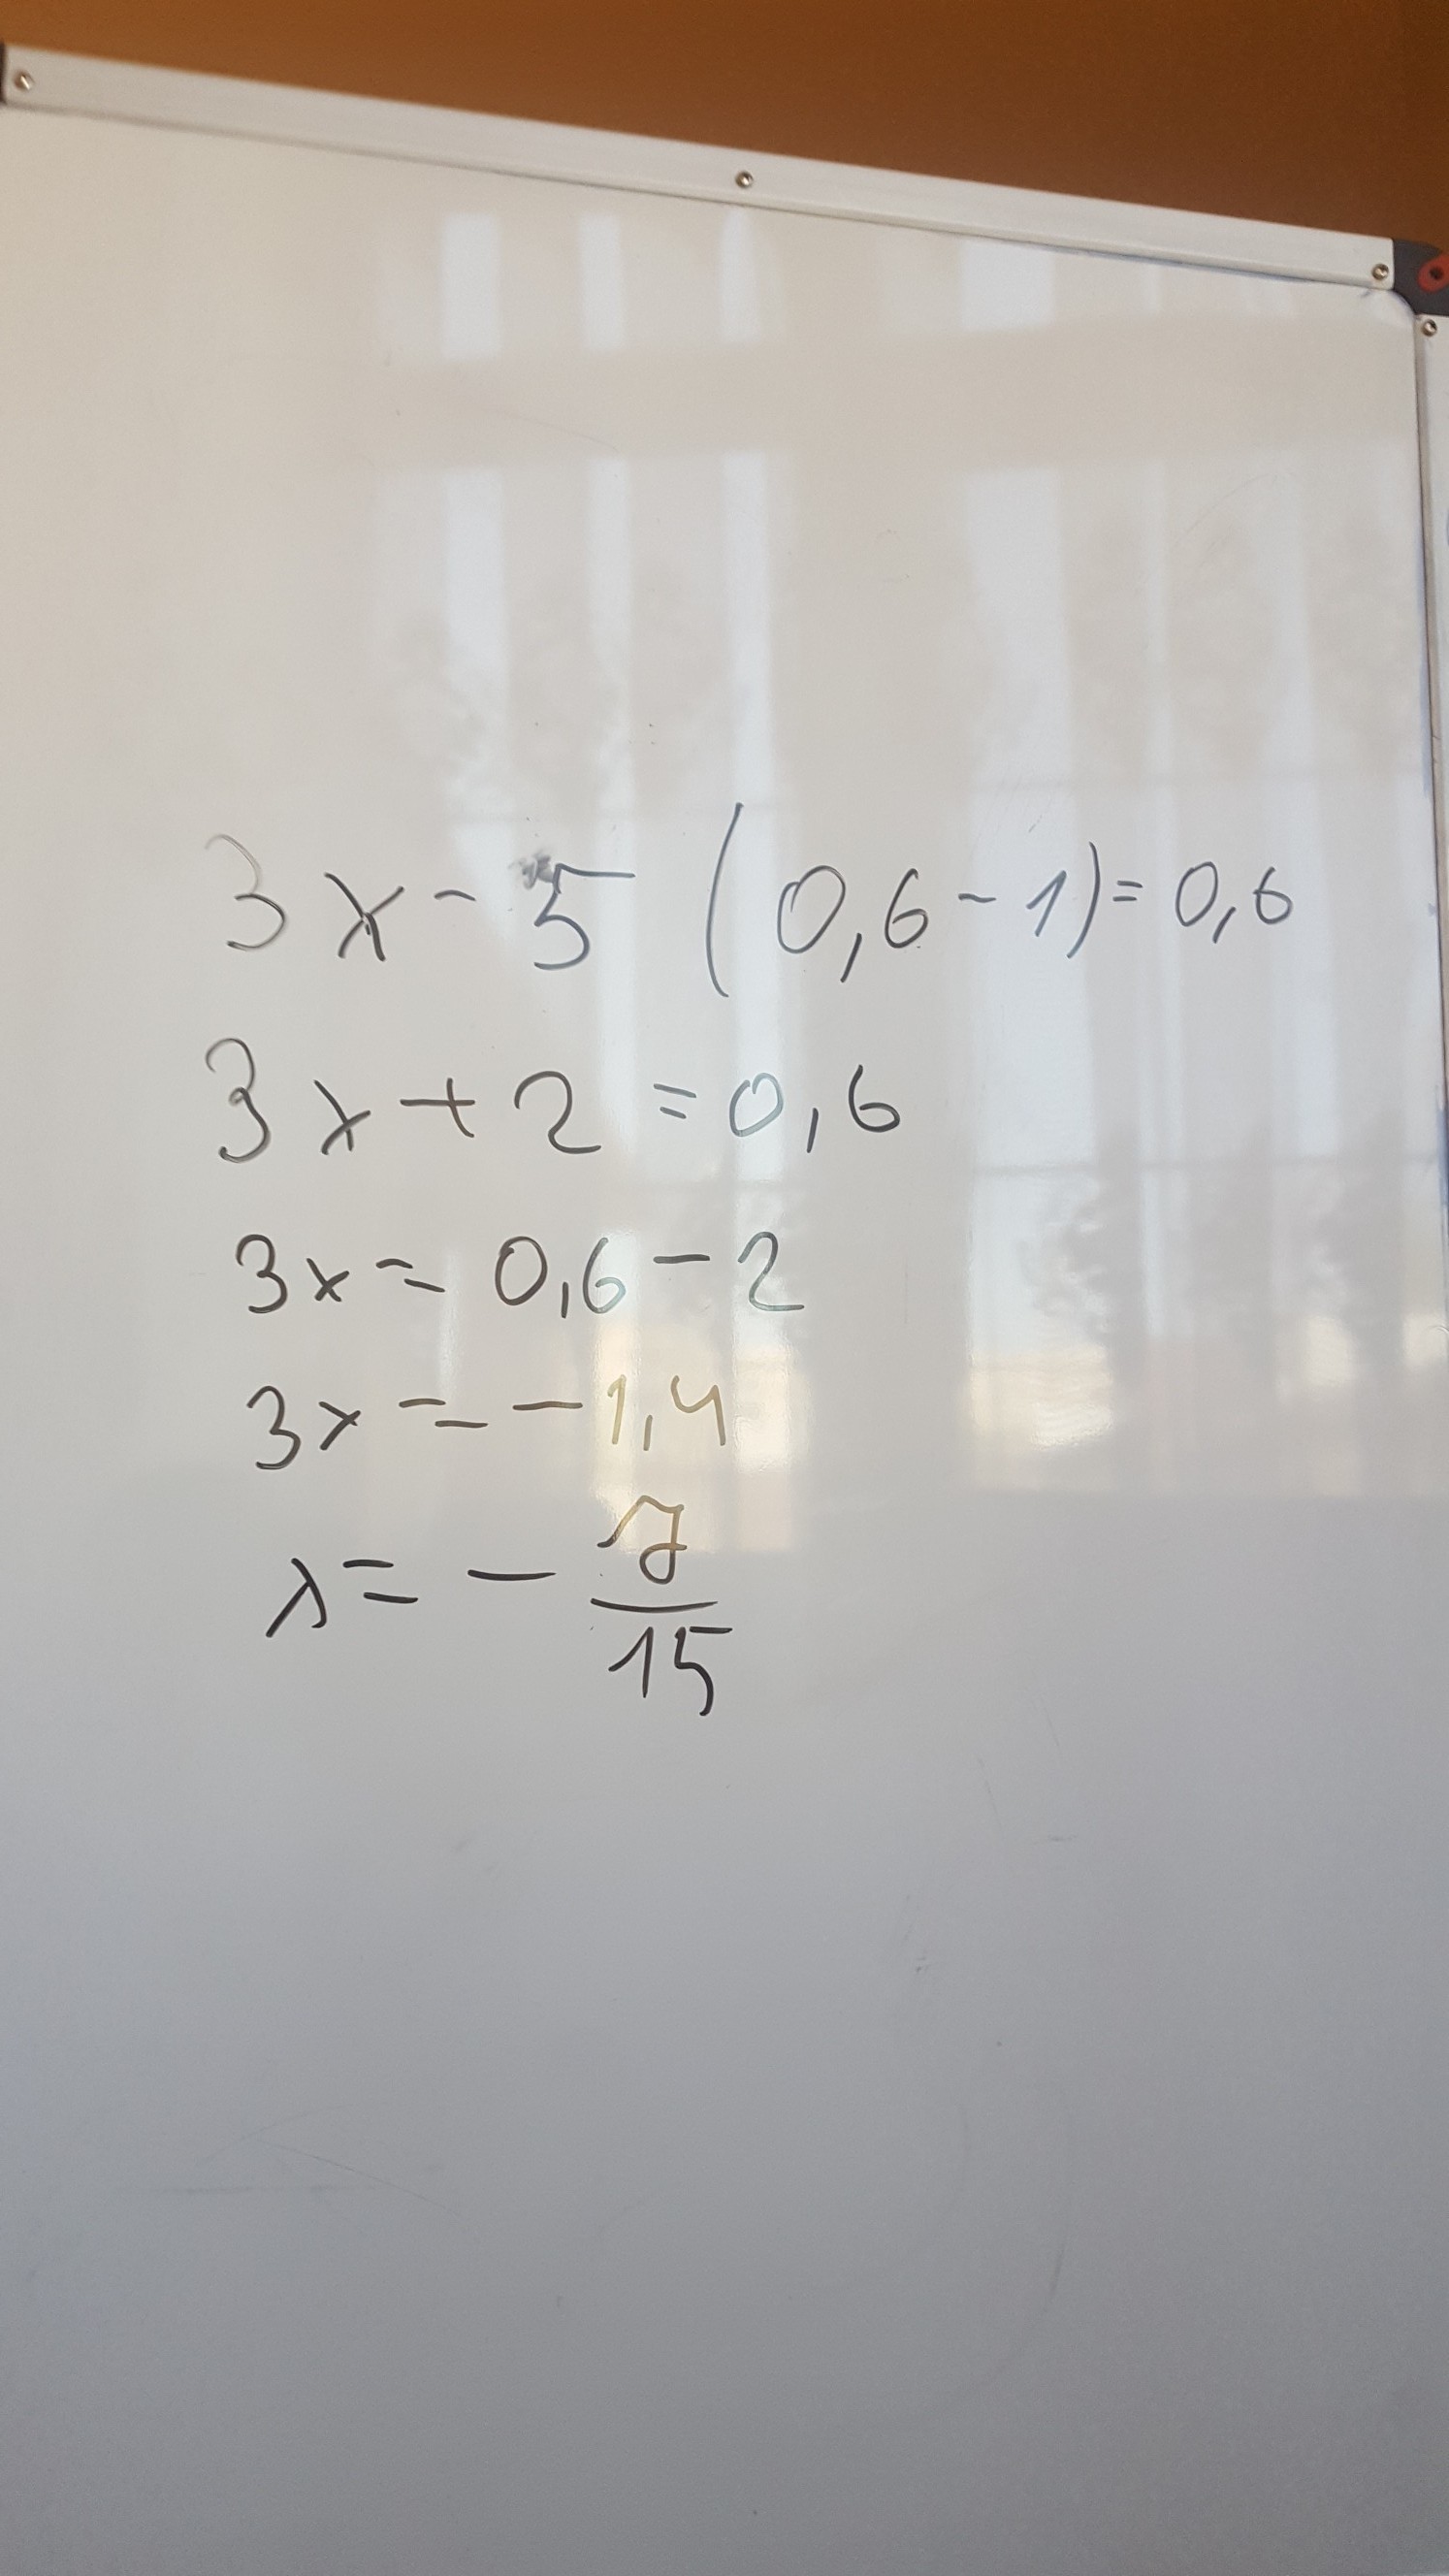 3x - 5 (0,6 - 1) = 0,6
3x + 2 = 0,6
3x = 0,6 - 2
3x = - 1,4
x = - 7/15